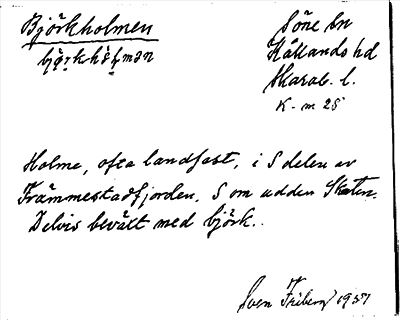 Björkholmen
Söne sn
Kållands hd
Skarab. l.
K-m 25
Holme, ofta landfast, i S delen av
Främmestadfjorden, S om udden Skaten.
Delvis beväxt med björk.
Sven Friberg 1937